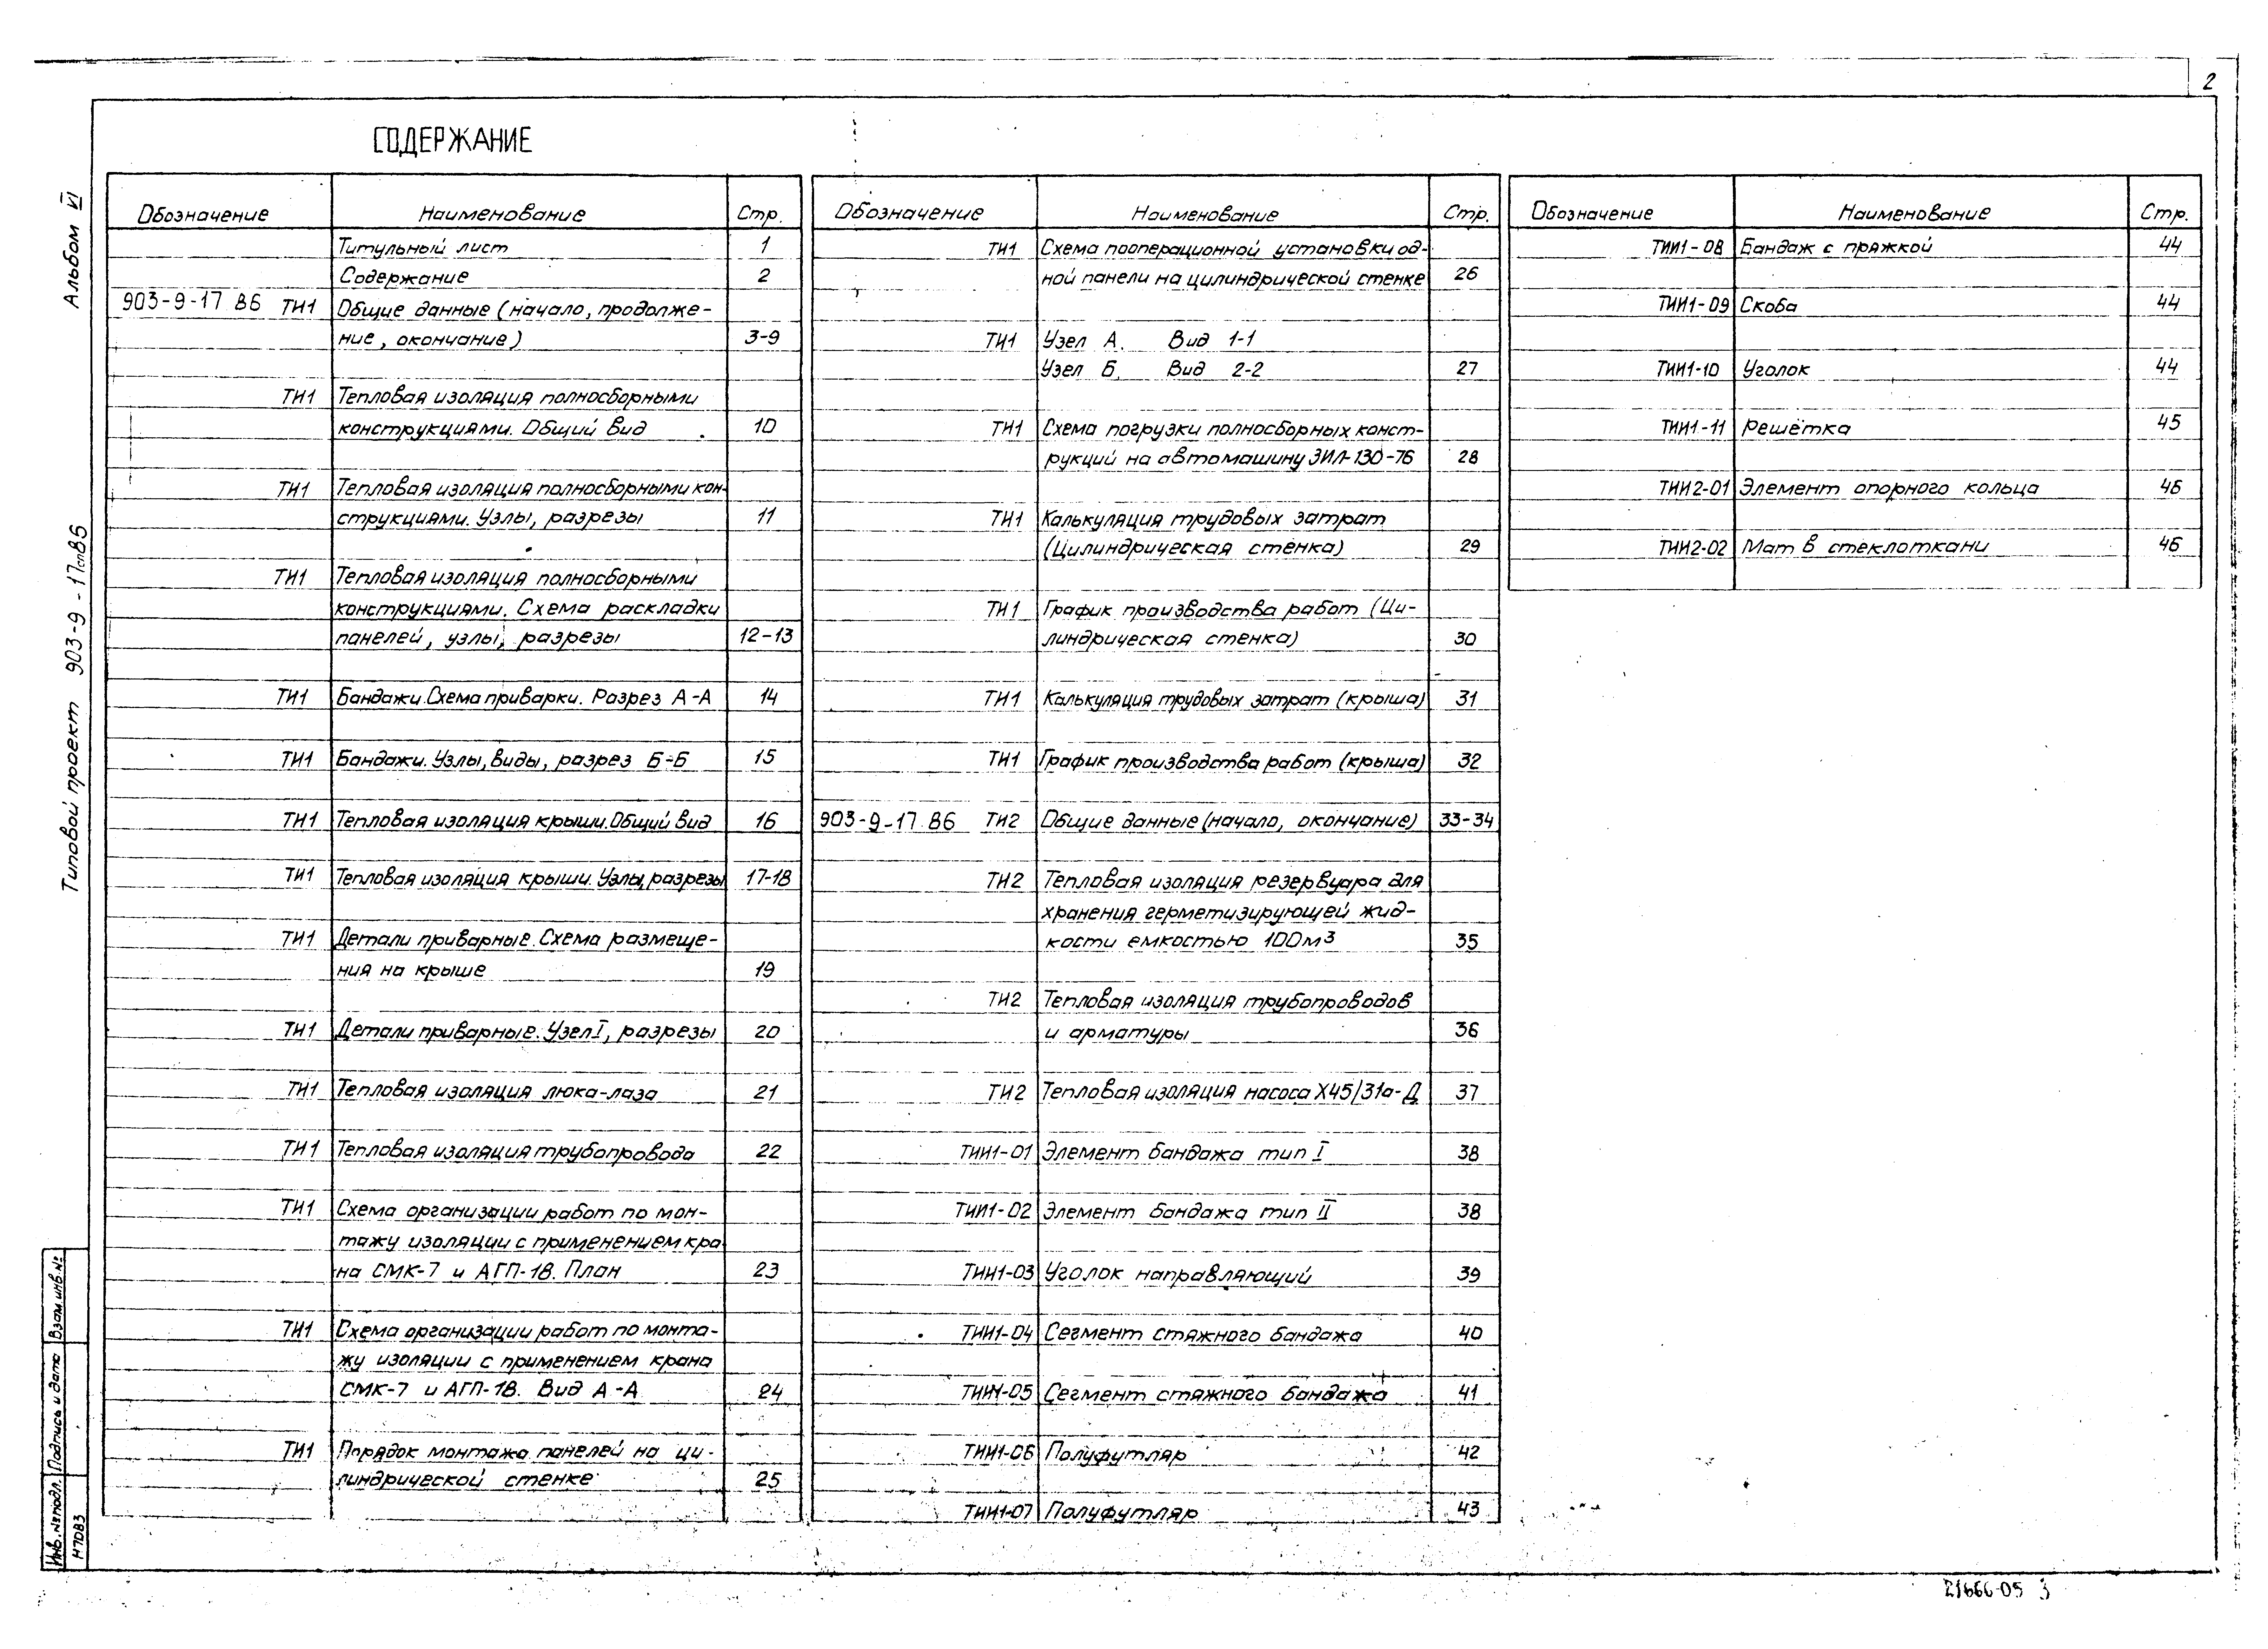 2
СОДЕРЖАНИЕ
Альбом VI
Типовой проект 903-9-17сп85
Обозначение Наименование Стр.
Титульный лист 1
Содержание 2
903-9-17 86 ТИ1 Общие данные (начало, продолже-
ние, окончание) 3-9
ТИ1 Тепловая изоляция полносборными
конструкциями. Общий вид 10
ТИ1 Тепловая изоляция полносборными кон-
струкциями. Узлы, разрезы 11
ТИ1 Тепловая изоляция полносборными
конструкциями. Схема раскладки
панелей, узлы, разрезы 12-13
ТИ1 Бандажи. Схема приварки. Разрез А-А 14
ТИ1 Бандажи. Узлы, виды, разрез Б-Б 15
ТИ1 Тепловая изоляция крыши. Общий вид 16
ТИ1 Тепловая изоляция крыши. Узлы, разрезы 17-18
ТИ1 Детали приварные. Схема размеще-
ния на крыше 19
ТИ1 Детали приварные. Узел I, разрезы 20
ТИ1 Тепловая изоляция люка-лаза 21
ТИ1 Тепловая изоляция трубопровода 22
ТИ1 Схема организации работ по мон-
тажу изоляции с применением кра-
на СМК-7 и АГП-18. План 23
ТИ1 Схема организации работ по монта-
жу изоляции с применением крана
СМК-7 и АГП-18. Вид А-А 24
ТИ1 Порядок монтажа панелей на ци-
линдрической стенке 25
Обозначение Наименование Стр.
ТИ1 Схема пооперационной установки од-
ной панели на цилиндрической стенке 26
ТИ1 Узел А. Вид 1-1
Узел Б. Вид 2-2 27
ТИ1 Схема погрузки полносборных конст-
рукций на автомашину ЗИЛ-130-76 28
ТИ1 Калькуляция трудовых затрат
(Цилиндрическая стенка) 29
ТИ1 График производства работ (Ци-
линдрическая стенка) 30
ТИ1 Калькуляция трудовых затрат (крыша) 31
ТИ1 График производства работ (крыша) 32
903-9-17.86 ТИ2 Общие данные (начало, окончание) 33-34
ТИ2 Тепловая изоляция резервуара для
хранения герметизирующей жид-
кости емкостью 100м³ 35
ТИ2 Тепловая изоляция трубопроводов
и арматуры 36
ТИ2 Тепловая изоляция насоса Х45/31а-Д 37
ТИИ1-01 Элемент бандажа тип I 38
ТИИ1-02 Элемент бандажа тип II 38
ТИИ1-03 Уголок направляющий 39
ТИИ1-04 Сегмент стяжного бандажа 40
ТИИ1-05 Сегмент стяжного бандажа 41
ТИИ1-06 Полуфутляр 42
ТИИ1-07 Полуфутляр 43
Обозначение Наименование Стр.
ТИИ1-08 Бандаж с пряжкой 44
ТИИ1-09 Скоба 44
ТИИ1-10 Уголок 44
ТИИ1-11 Решётка 45
ТИИ2-01 Элемент опорного кольца 46
ТИИ2-02 Мат в стеклоткани 46
Взам. инв. №
Подпись и дата
Инв. № подл.
Н7083
21666-05 3